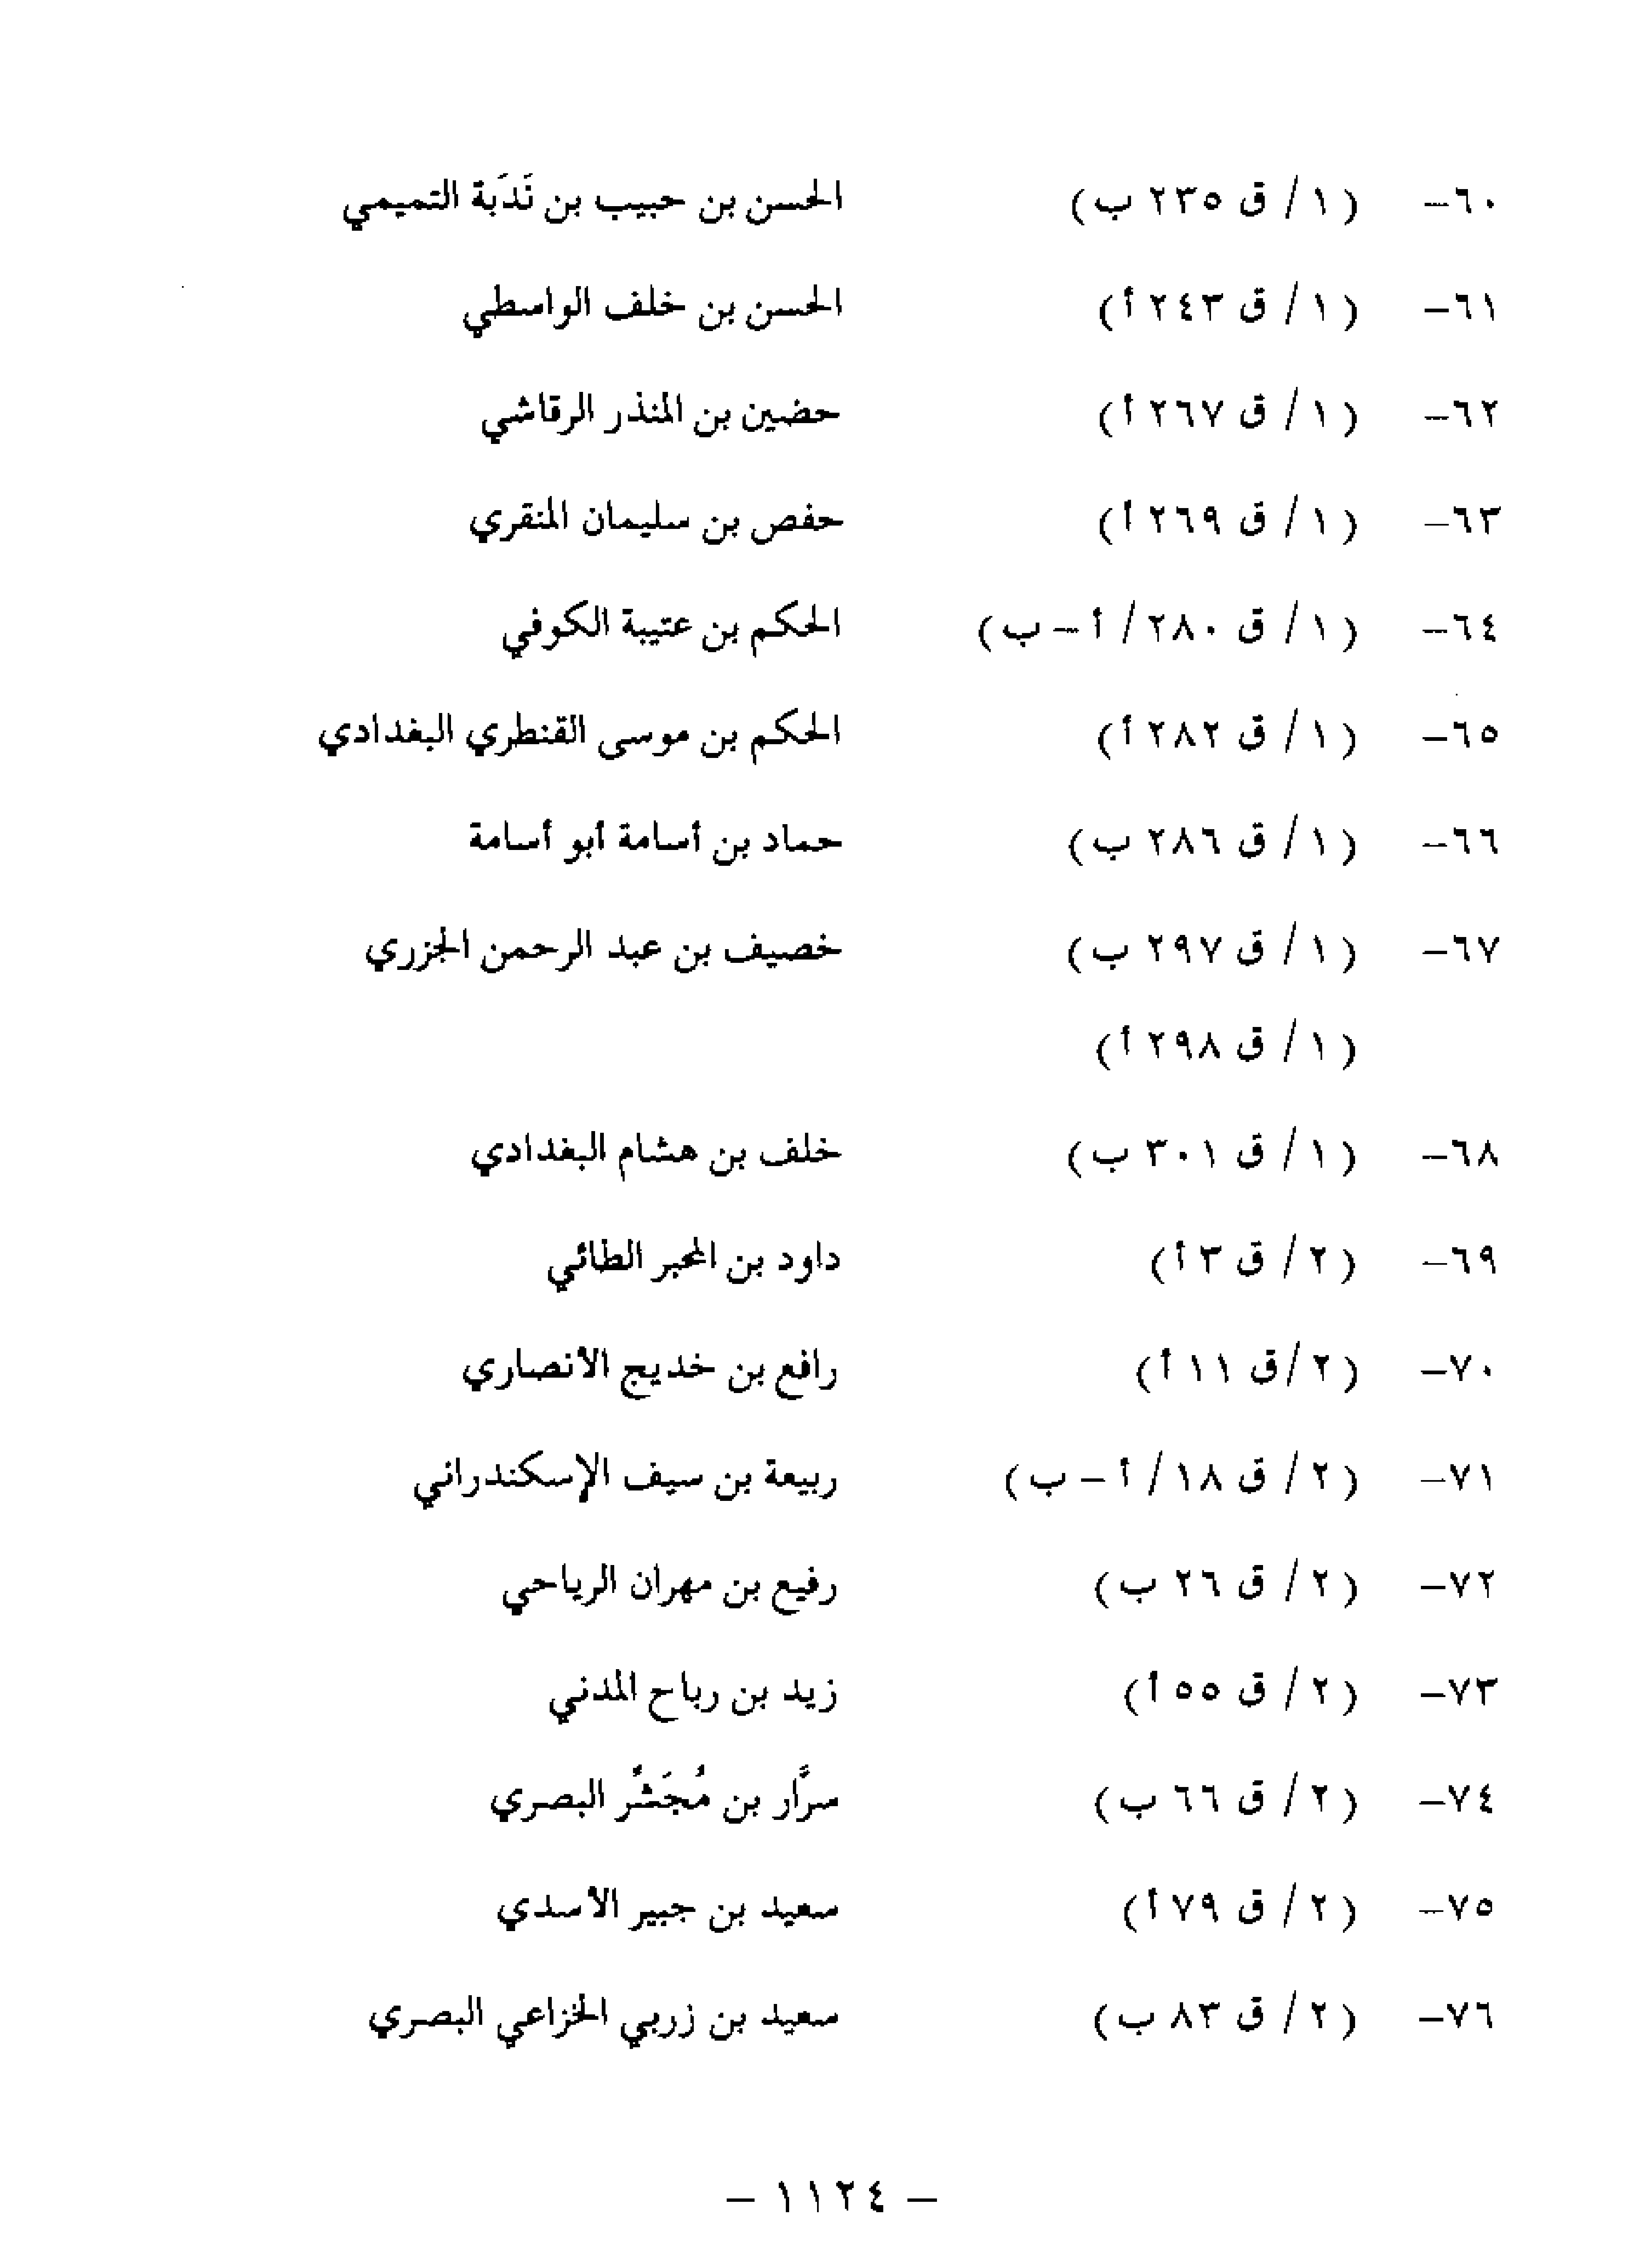 ٦٠- (١/ ق ٢٣٥ ب) الحسن بن حبيب بن نَدَبة التميمي
٦١- (١/ ق ٢٤٣ أ) الحسن بن خلف الواسطي
٦٢- (١/ ق ٢٦٧ أ) حضين بن المنذر الرقاشي
٦٣- (١/ ق ٢٦٩ أ) حفص بن سليمان المنقري
٦٤- (١/ ق ٢٨٠/ أ - ب) الحكم بن عتيبة الكوفي
٦٥- (١/ ق ٢٨٢ أ) الحكم بن موسى القنطري البغدادي
٦٦- (١/ ق ٢٨٦ ب) حماد بن أسامة أبو أسامة
٦٧- (١/ ق ٢٩٧ ب) خصيف بن عبد الرحمن الجزري
(١/ ق ٢٩٨ أ)
٦٨- (١/ ق ٣٠١ ب) خلف بن هشام البغدادي
٦٩- (٢/ ق ٣ أ) داود بن المحبر الطائي
٧٠- (٢/ق ١١ أ) رافع بن خديج الأنصاري
٧١- (٢/ ق ١٨/ أ - ب) ربيعة بن سيف الإسكندراني
٧٢- (٢/ ق ٢٦ ب) رفيع بن مهران الرياحي
٧٣- (٢/ ق ٥٥ أ) زيد بن رباح المدني
٧٤- (٢/ ق ٦٦ ب) سرَّار بن مُجَشِّر البصري
٧٥- (٢/ ق ٧٩ أ) سعيد بن جبير الأسدي
٧٦- (٢/ ق ٨٣ ب) سعيد بن زربي الخزاعي البصري
- ١١٢٤ -